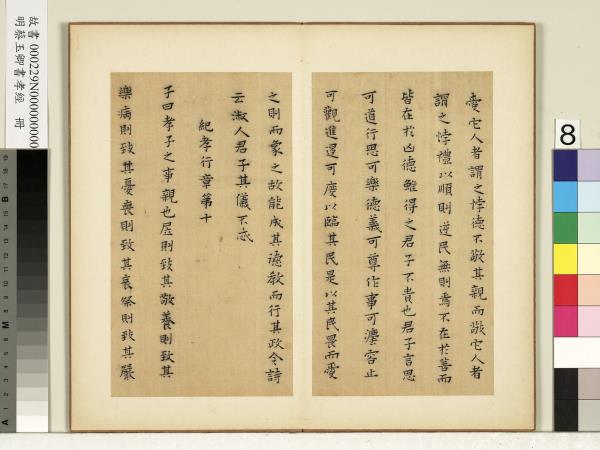 愛它人者謂之悖德不敬其親而敬它人者
謂之悖禮以順則逆民無則焉不在於善而
皆在於凶德雖得之君子不貴也君子言思
可道行思可樂德義可尊作事可灋容止
可觀進退可度以臨其民是以其民畏而愛
之則而象之故能成其德教而行其政令詩
云淑人君子其儀不忒
紀孝行章第十
子曰孝子之事親也居則致其敬養則致其
樂病則致其憂喪則致其哀祭則致其嚴
故書 000229N000000000
明蔡玉卿書孝經 冊
8
B
M
A